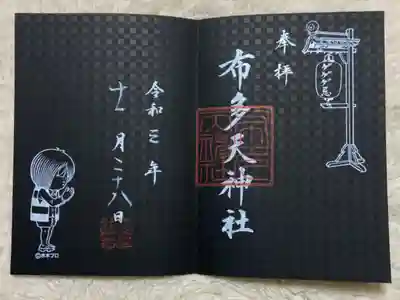 奉拝
布多天神社
令和三年
十一月二十八日
©水木プロ